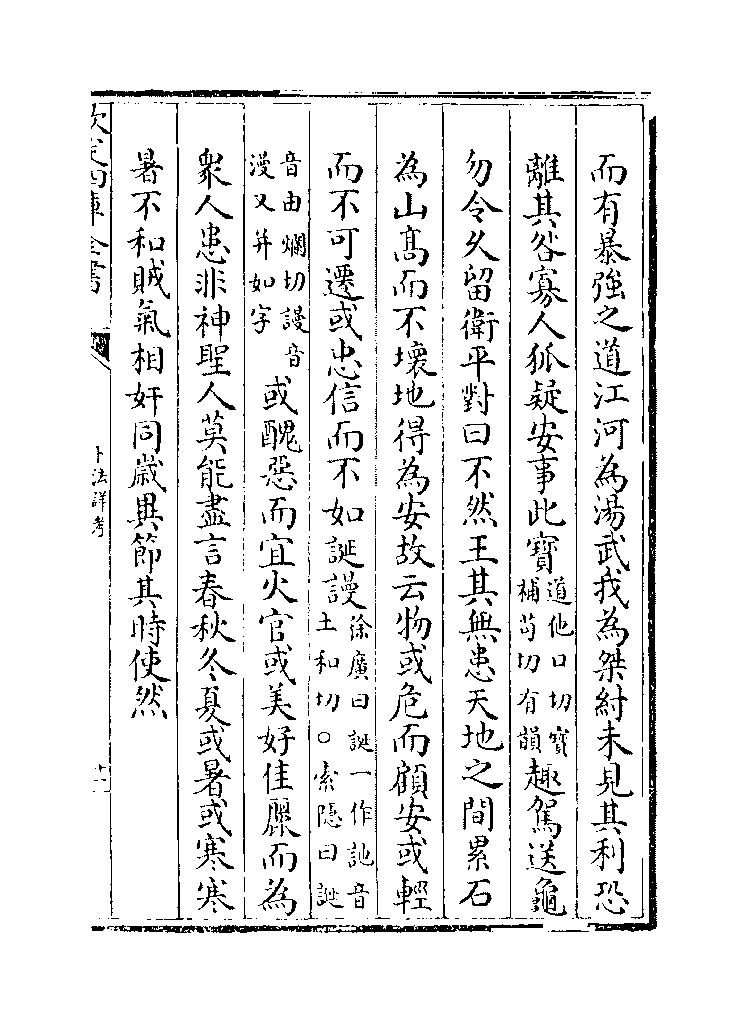 而有暴強之道江河為湯武我為桀紂未見其利恐
離其咎寡人狐疑安事此寳道他口切寳補茍切有韻趣駕送龜
勿令久留衛平對曰不然王其無患天地之間累石
為山髙而不壞地得為安故云物或危而顧安或輕
而不可遷或忠信而不如誕謾徐廣曰誕一作訑音土和切○索隠曰誕
音由爛切謾音漫又并如字或醜惡而宜大官或美好佳麗而為
衆人患非神聖人莫能盡言春秋冬夏或暑或寒寒
暑不和賊氣相奸同嵗異節其時使然
欽定四庫全書
卜法詳考
十一